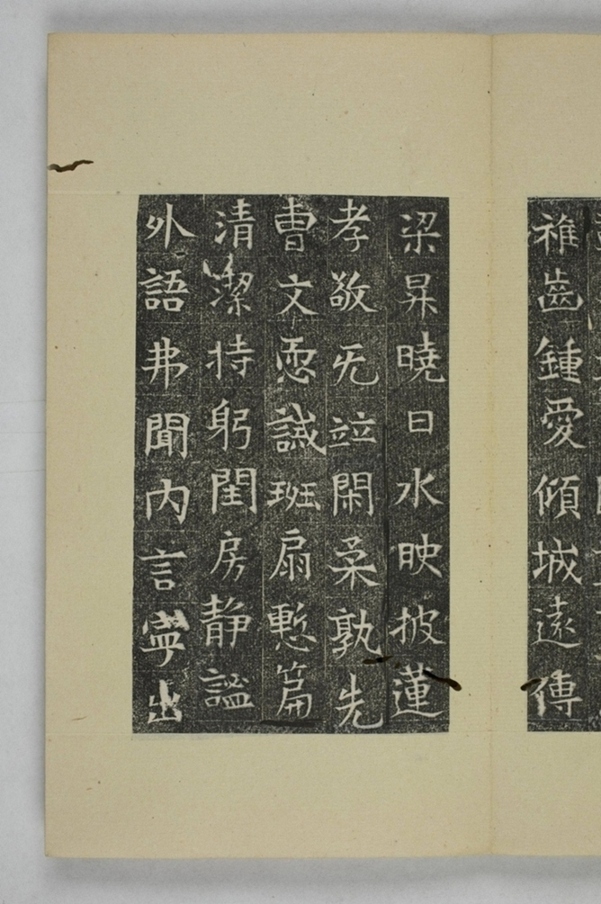 稚齒鍾愛傾城遠傳
梁昇曉日水映披蓮
孝敬旡竝閑柔孰先
曹文恧誡班扇慙篇
清潔持躬閨房静謐
外語弗聞内言寧出